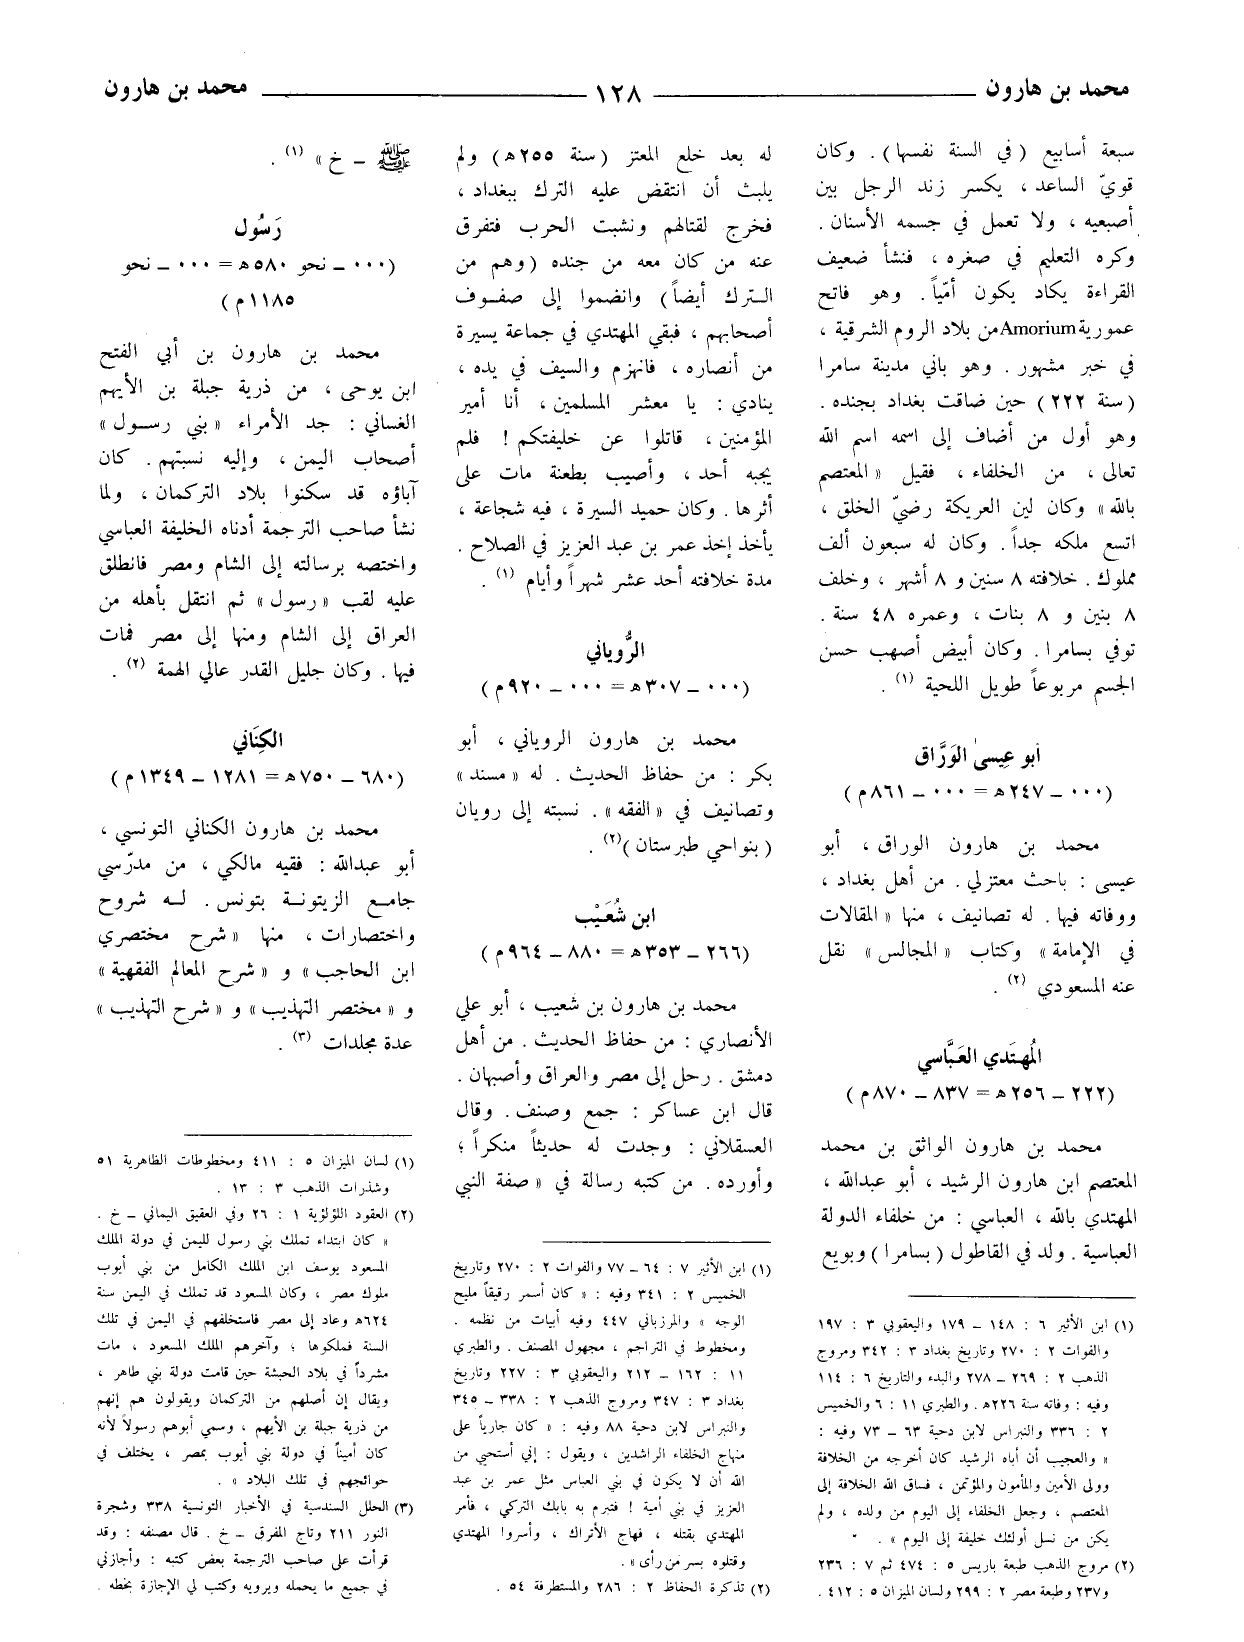 محمد بن هارون
١٢٨
محمد بن هارون
سبعة أسابيع (في السنة نفسها). وكان
قويّ الساعد ، يكسر زند الرجل بين
أصبعيه ، ولا تعمل في جسمه الأسنان .
وكره التعليم في صغره ، فنشأ ضعيف
القراءة يكاد يكون أمّياً. وهو فاتح
عمورية Amorium من بلاد الروم الشرقية ،
في خبر مشهور . وهو باني مدينة سامرا
(سنة ٢٢٢) حين ضاقت بغداد بجنده .
وهو أول من أضاف إلى اسمه اسم الله
تعالى ، من الخلفاء ، فقيل «المعتصم
بالله» وكان لين العريكة رضيّ الخلق ،
اتسع ملكه جداً. وكان له سبعون ألف
مملوك . خلافته ٨ سنين و ٨ أشهر ، وخلف
٨ بنين و ٨ بنات ، وعمره ٤٨ سنة .
توفي بسامرا. وكان أبيض أصهب حسن
الجسم مربوعاً طويل اللحية (١) .
أبو عِيسىٰ الوَرَّاق
(٠٠٠ – ٢٤٧ه = ٠٠٠ – ٨٦١م)
محمد بن هارون الوراق ، أبو
عيسى : باحث معتزلي. من أهل بغداد ،
ووفاته فيها. له تصانيف ، منها «المقالات
في الإمامة» وكتاب «المجالس» نقل
عنه المسعودي (٢) .
المُهتَدي العَبَّاسي
(٢٢٢ – ٢٥٦ه = ٨٣٧ – ٨٧٠م)
محمد بن هارون الواثق بن محمد
المعتصم ابن هارون الرشيد ، أبو عبدالله ،
المهتدي بالله ، العباسي : من خلفاء الدولة
العباسية . ولد في القاطول (بسامرا) وبويع
(١) ابن الأثير ٦ : ١٤٨ – ١٧٩ واليعقوبي ٣ : ١٩٧
والفوات ٢ : ٢٧٠ وتاريخ بغداد ٣ : ٣٤٢ ومروج
الذهب ٢ : ٢٦٩ – ٢٧٨ والبدء والتاريخ ٦ : ١١٤
وفيه : وفاته سنة ٢٢٦ه. والطبري ١١ : ٦ والخميس
٢ : ٣٣٦ والنبراس لابن دحية ٦٣ – ٧٣ وفيه :
« والعجيب أن أباه الرشيد كان أخرجه من الخلافة
وولى الأمين والمأمون والمؤتمن ، فساق الله الخلافة إلى
المعتصم ، وجعل الخلفاء إلى اليوم من ولده ، ولم
يكن من نسل أولئك خليفة إلى اليوم » .
(٢) مروج الذهب طبعة باريس ٥ : ٤٧٤ ثم ٧ : ٢٣٦
و٢٣٧ وطبعة مصر ٢ : ٢٩٩ ولسان الميزان ٥ : ٤١٢ .
له بعد خلع المعتز (سنة ٢٥٥ه) ولم
يلبث أن انتقض عليه الترك ببغداد ،
فخرج لقتالهم ونشبت الحرب فتفرق
عنه من كان معه من جنده (وهم من
الترك أيضاً) وانضموا إلى صفوف
أصحابهم ، فبقي المهتدي في جماعة يسيرة
من أنصاره ، فانهزم والسيف في يده ،
ينادي : يا معشر المسلمين ، أنا أمير
المؤمنين ، قاتلوا عن خليفتكم ! فلم
يجبه أحد ، وأصيب بطعنة مات على
أثرها. وكان حميد السيرة ، فيه شجاعة ،
يأخذ إخذ عمر بن عبد العزيز في الصلاح .
مدة خلافته أحد عشر شهراً وأيام (١) .
الرُّوياني
(٠٠٠ – ٣٠٧ه = ٠٠٠ – ٩٢٠م)
محمد بن هارون الروياني ، أبو
بكر : من حفاظ الحديث. له «مسند»
وتصانيف في «الفقه». نسبته إلى رويان
(بنواحي طبرستان)(٢) .
ابن شُعَيْب
(٢٦٦ – ٣٥٣ه = ٨٨٠ – ٩٦٤م)
محمد بن هارون بن شعيب ، أبو علي
الأنصاري : من حفاظ الحديث . من أهل
دمشق. رحل إلى مصر والعراق وأصبهان .
قال ابن عساكر : جمع وصنف. وقال
العسقلاني : وجدت له حديثاً منكراً ؛
وأورده. من كتبه رسالة في « صفة النبي
(١) ابن الأثير ٧ : ٦٤ – ٧٧ والفوات ٢ : ٢٧٠ وتاريخ
الخميس ٢ : ٣٤١ وفيه : « كان أسمر رقيقاً مليح
الوجه » والمرزباني ٤٤٧ وفيه أبيات من نظمه .
ومخطوط في التراجم ، مجهول المصنف . والطبري
١١ : ١٦٢ – ٢١٢ واليعقوبي ٣ : ٢٢٧ وتاريخ
بغداد ٣ : ٣٤٧ ومروج الذهب ٢ : ٣٣٨ – ٣٤٥
والنبراس لابن دحية ٨٨ وفيه : « كان جارياً على
منهاج الخلفاء الراشدين ، ويقول : إني أستحيي من
الله أن لا يكون في بني العباس مثل عمر بن عبد
العزيز في بني أمية ! فتبرم به بابك التركي ، فأمر
المهتدي بقتله ، فهاج الأتراك ، وأسروا المهتدي
وقتلوه بسر من رأى » .
(٢) تذكرة الحفاظ ٢ : ٢٨٦ والمستطرفة ٥٤ .
ﷺ – خ» (١) .
رَسُول
(٠٠٠ – نحو ٥٨٠ه = ٠٠٠ – نحو
١١٨٥م)
محمد بن هارون بن أبي الفتح
ابن يوحى ، من ذرية جبلة بن الأيهم
الغساني : جد الأمراء «بني رسول»
أصحاب اليمن ، وإليه نسبتهم. كان
آباؤه قد سكنوا بلاد التركمان ، ولما
نشأ صاحب الترجمة أدناه الخليفة العباسي
واختصه برسالته إلى الشام ومصر فانطلق
عليه لقب «رسول» ثم انتقل بأهله من
العراق إلى الشام ومنها إلى مصر فمات
فيها. وكان جليل القدر عالي الهمة (٢) .
الكِنَاني
(٦٨٠ – ٧٥٠ه = ١٢٨١ – ١٣٤٩م)
محمد بن هارون الكناني التونسي ،
أبو عبدالله : فقيه مالكي ، من مدرّسي
جامع الزيتونة بتونس. له شروح
واختصارات ، منها «شرح مختصري
ابن الحاجب» و «شرح المعالم الفقهية»
و «مختصر التهذيب» و «شرح التهذيب»
عدة مجلدات (٣) .
(١) لسان الميزان ٥ : ٤١١ ومخطوطات الظاهرية ٥١
وشذرات الذهب ٣ : ١٣ .
(٢) العقود اللؤلؤية ١ : ٢٦ وفي العقيق اليماني – خ .
« كان ابتداء تملك بني رسول لليمن في دولة الملك
المسعود يوسف ابن الملك الكامل من بني أيوب
ملوك مصر ، وكان المسعود قد تملك في اليمن سنة
٦٢٤ه وعاد إلى مصر فاستخلفهم في اليمن في تلك
السنة فملكوها ؛ وآخرهم الملك المسعود ، مات
مشرداً في بلاد الحبشة حين قامت دولة بني طاهر ،
ويقال إن أصلهم من التركمان ويقولون هم إنهم
من ذرية جبلة بن الأيهم ، وسمي أبوهم رسولاً لأنه
كان أميناً في دولة بني أيوب بمصر ، يختلف في
حوائجهم في تلك البلاد » .
(٣) الحلل السندسية في الأخبار التونسية ٣٣٨ وشجرة
النور ٢١١ وتاج المفرق – خ. قال مصنفه : وقد
قرأت على صاحب الترجمة بعض كتبه : وأجازني
في جميع ما يحمله ويرويه وكتب لي الإجازة بخطه .